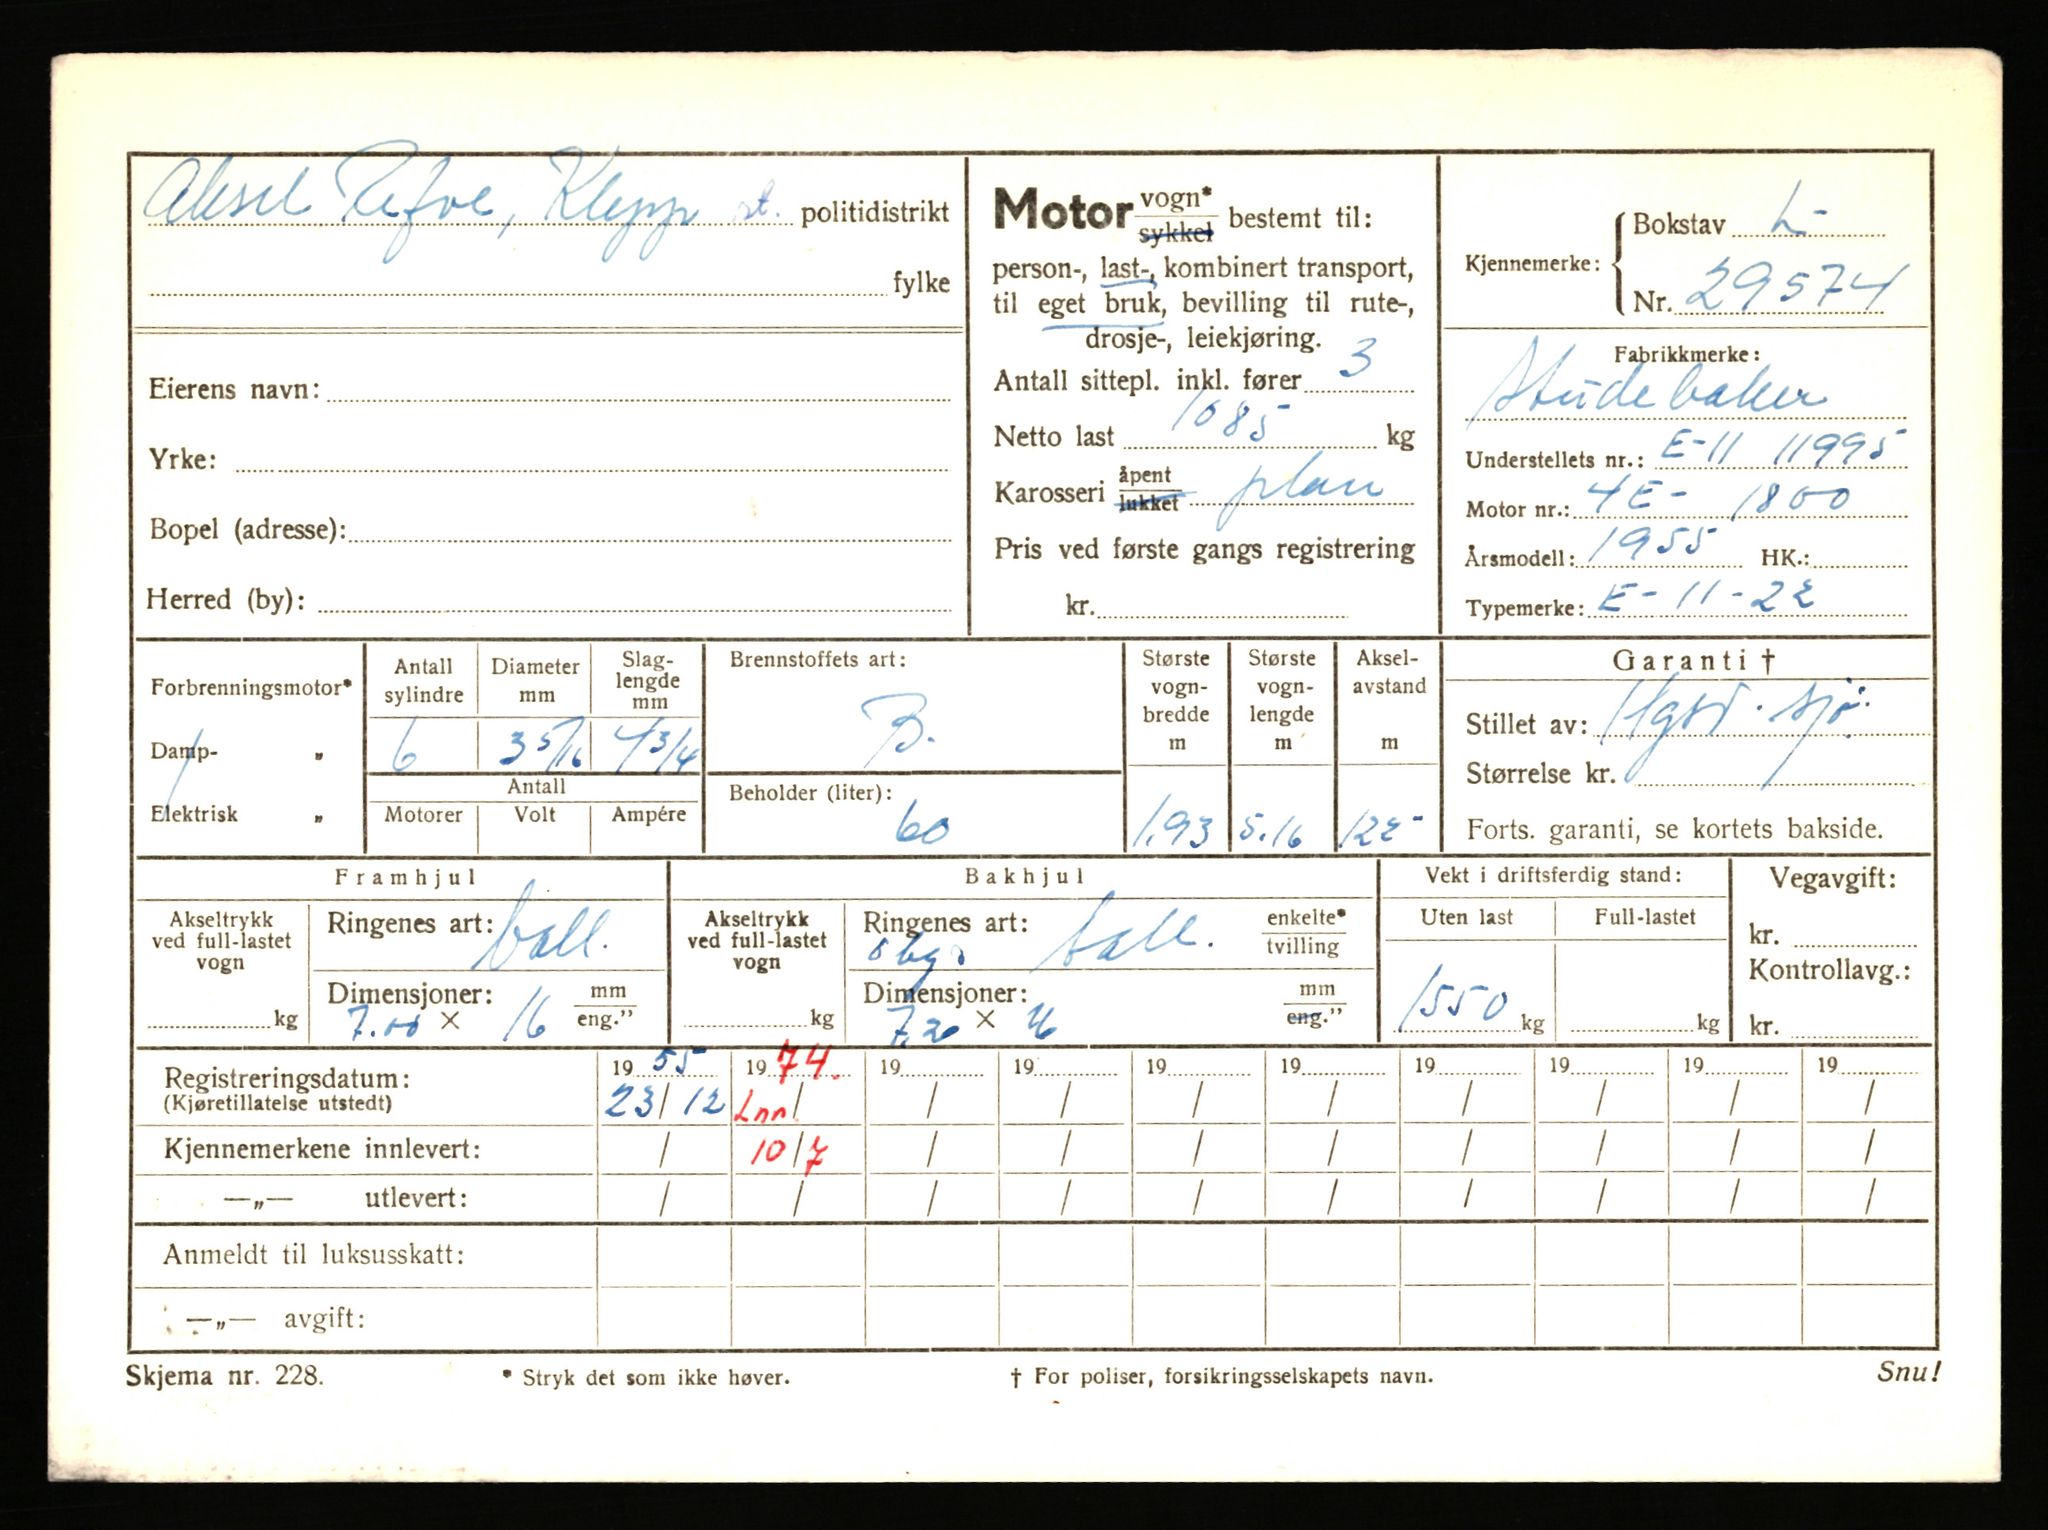 Aksel Refve, Klepp st. politidistrikt
fylke
Eierens navn:
Yrke:
Bopel (adresse):
Herred (by):
Motor vogn* sykkel bestemt til:
person-, last-, kombinert transport,
til eget bruk, bevilling til rute-,
drosje-, leiekjøring.
Antall sittepl. inkl. fører 3
Netto last 1085 kg
Karosseri åpent lukket plan
Pris ved første gangs registrering
kr.
Kjennemerke: Bokstav L-
Nr. 29574
Fabrikkmerke:
Studebaker
Understellets nr.: E-11 11995
Motor nr.: 4E- 1800
Årsmodell: 1955 HK.:
Typemerke: E-11-22
Forbrenningsmotor*
Damp- „
Elektrisk „
Antall sylindre Diameter mm Slag-lengde mm
6 3 5/16 4 3/4
Antall
Motorer Volt Ampére
Brennstoffets art:
B.
Beholder (liter):
60
Største vogn-bredde m Største vogn-lengde m Aksel-avstand m
1,93 5.16 122"
Garanti †
Stillet av:
Størrelse kr.
Forts. garanti, se kortets bakside.
Framhjul
Akseltrykk ved full-lastet vogn
kg
Ringenes art: ball.
Dimensjoner: mm eng."
7.00 × 16
Bakhjul
Akseltrykk ved full-lastet vogn
kg
Ringenes art: ball. enkelte* tvilling
Dimensjoner: mm eng."
7,20 × 16
Vekt i driftsferdig stand:
Uten last Full-lastet
1550 kg kg
Vegavgift:
kr.
Kontrollavg.:
kr.
Registreringsdatum: 19 55 19 74. 19 19 19 19 19 19 19 19
(Kjøretillatelse utstedt) 23/12 Lnn / / / / / / / / /
Kjennemerkene innlevert: / 10/7 / / / / / / / /
—„— utlevert: / / / / / / / / / /
Anmeldt til luksusskatt:
—„— avgift:
Skjema nr. 228. * Stryk det som ikke høver. † For poliser, forsikringsselskapets navn. Snu!